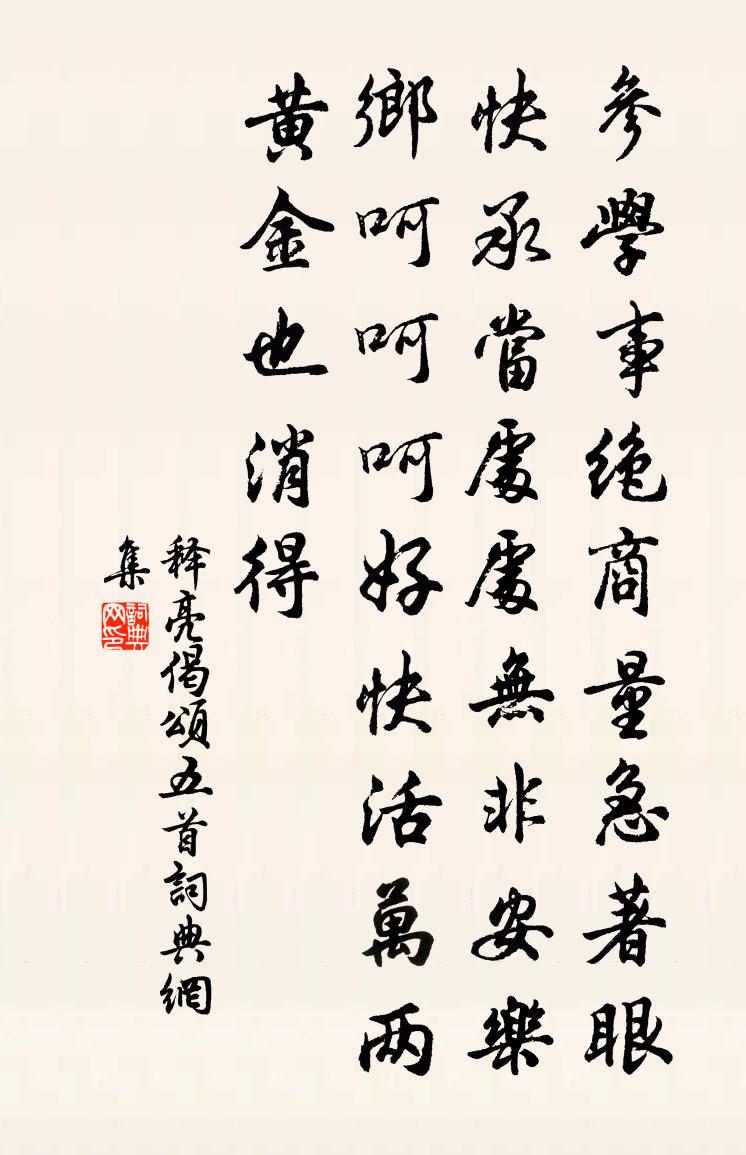 參學事絶商量急著眼
快承當處處無非安樂
鄉呵呵呵好快活萬两
黄金也消得
释亮偈頌五首詞典網
集
詞典网印